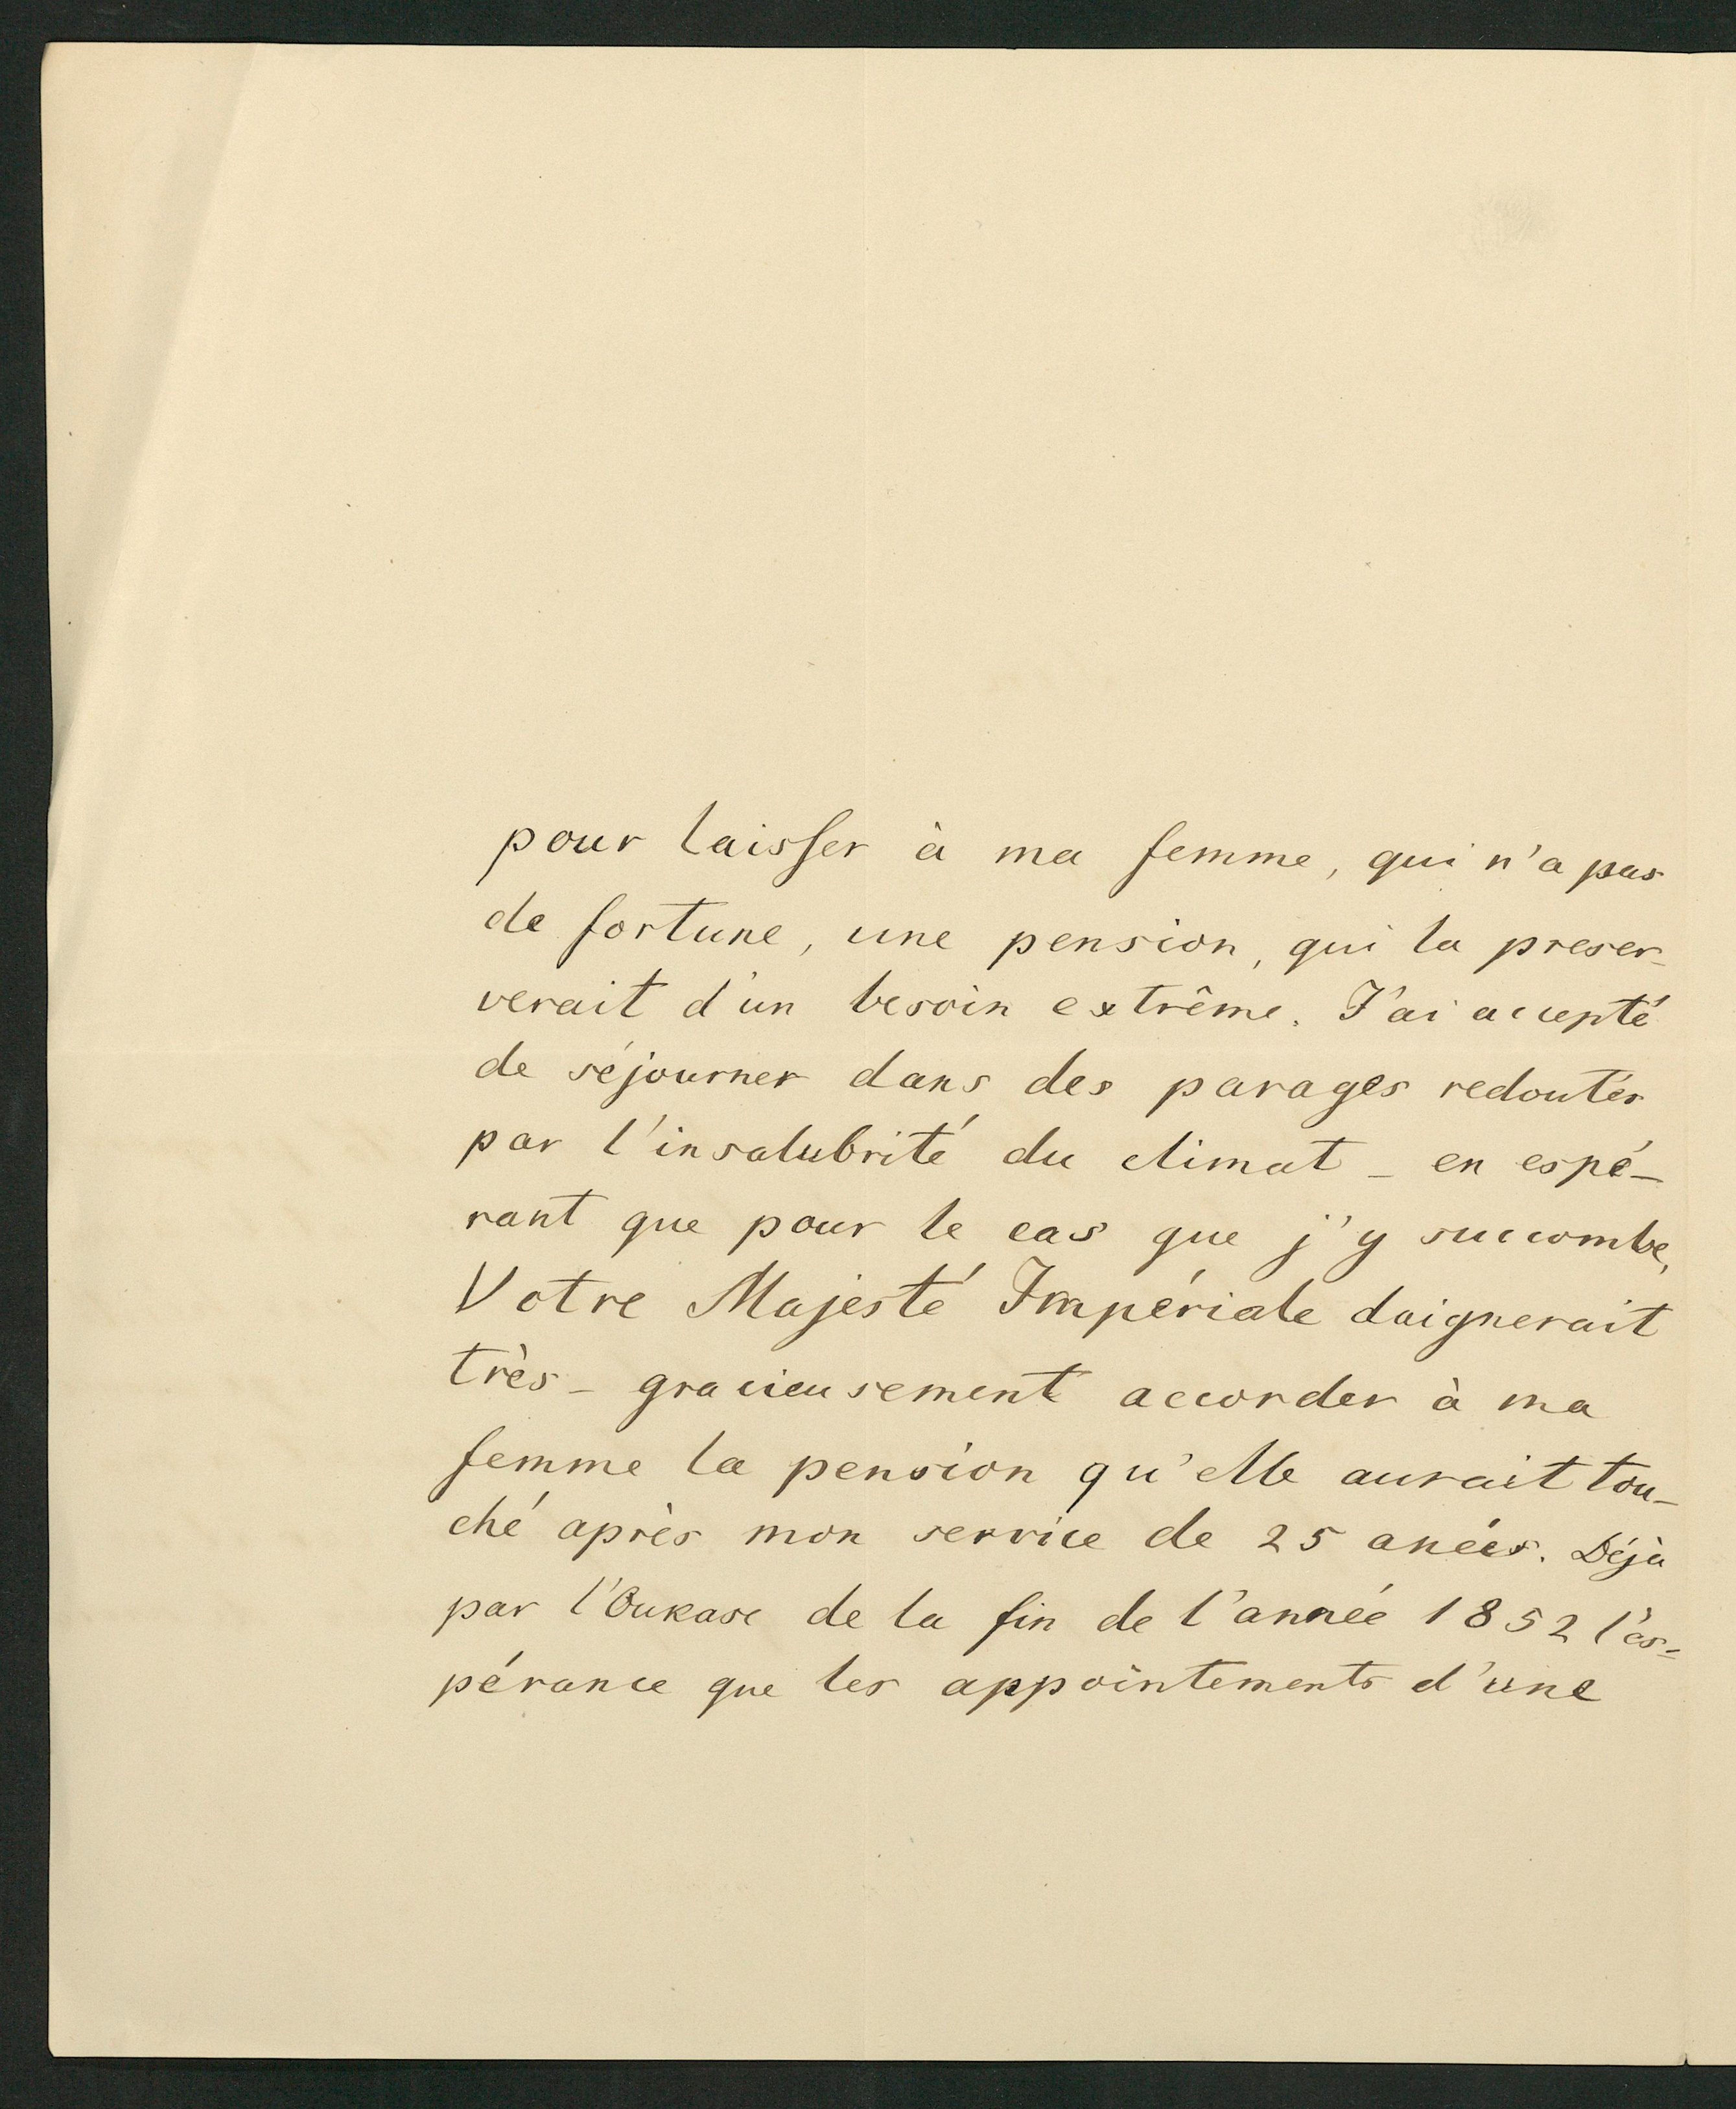 pour laisser à ma femme, qui n'a pas
de fortune, une pension, qui la preser-
verait d'un besoin extrême. J'ai accepté
de séjourner dans des parages redoutés
par l'insalubrité du climat - en espé-
rant que pour le cas que j'y succombe,
Votre Majesté Impériale daignerait
très - gracieusement accorder à ma
femme la pension qu'elle aurait tou-
ché après mon service de 25 aneés. Déjà
par l'Oukase de la fin de l'anneé 1852 l'es-
pérance que les appointements d'une